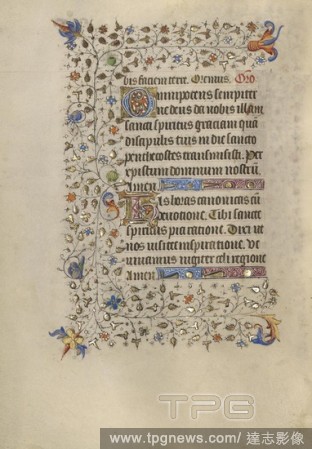 bis faciem terre. Oremus. Oro
Omnipotens sempiter
ne deus da nobis illam
sancti spiritus graciam quā
discipulis tuis in die sancto
penthecostes transmisisti. Per
xpistum dominum nostrū
Amen.
Has horas canonicas cū
deuotione. Tibi sancte
spiritus pia ratione. Dixi ut
nos visites inspiratione. Ut
uiuamus iugiter celi regione
Amen
TPG
www.tpgnews.com/達志影像